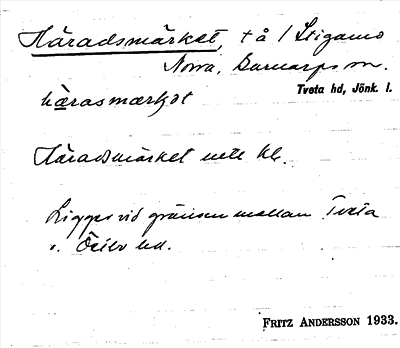 Häradsmärket, t å / Stigamo
Norra, Barnarps sn.
Tveta hd, Jönk. l.
hærasmærkət
Häradsmärket nell kl.
Ligger vid gränsen mellan Tveta
o. Östbo hd.
FRITZ ANDERSSON 1933.